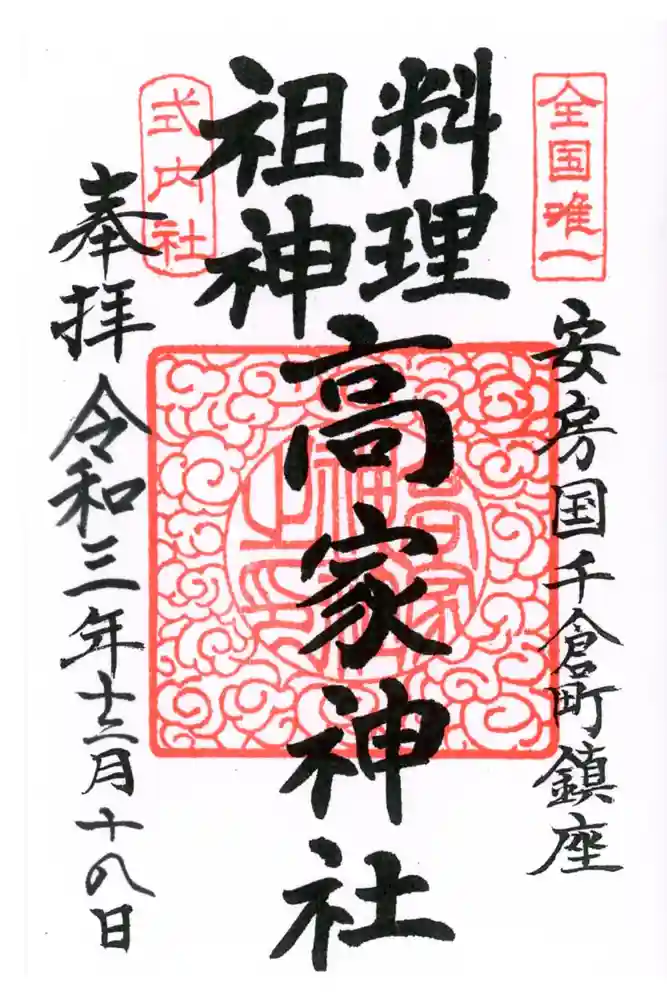 全国唯一
安房国千倉町鎮座
料理
祖神
高家神社
式内社
奉拝 令和三年十二月十八日